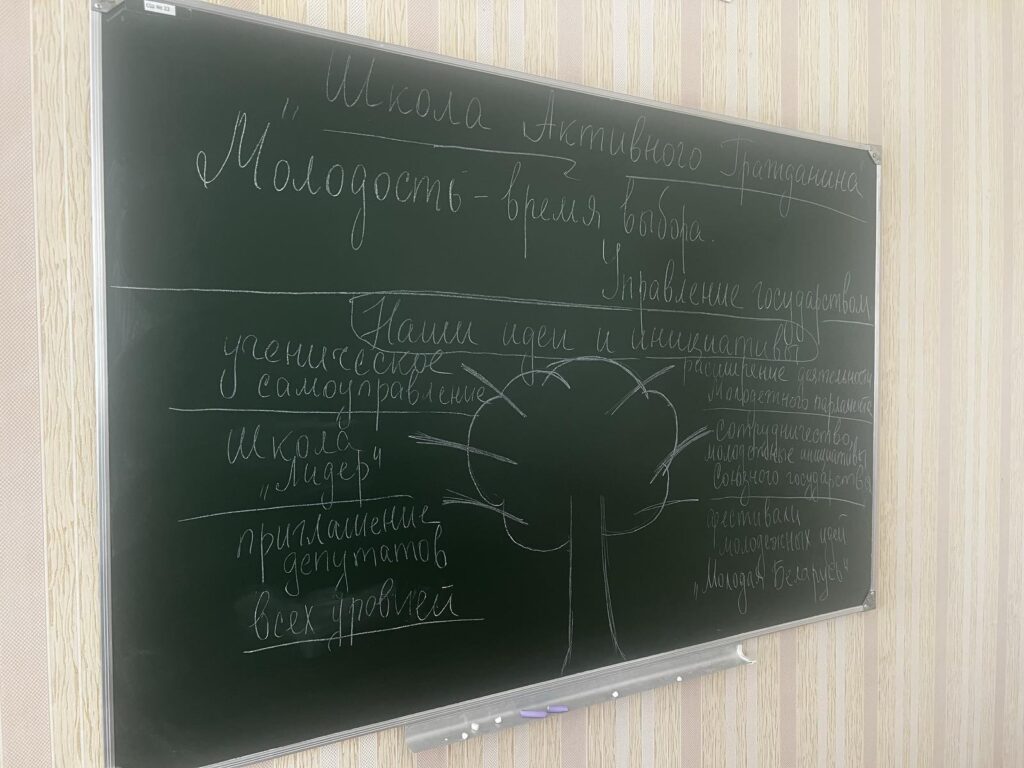 СШ № 22
Школа Активного Гражданина
" Молодость - время выбора.
Управление государством
Наши идеи и инициативы
ученическое
самоуправление
Школа
„Лидер"
приглашение
депутатов
всех уровней
расширение деятельности
Молодежного парламента
сотрудничество
молодежные инициативы
Союзного государства
фестивали
молодежных идей
„Молодая Беларусь"